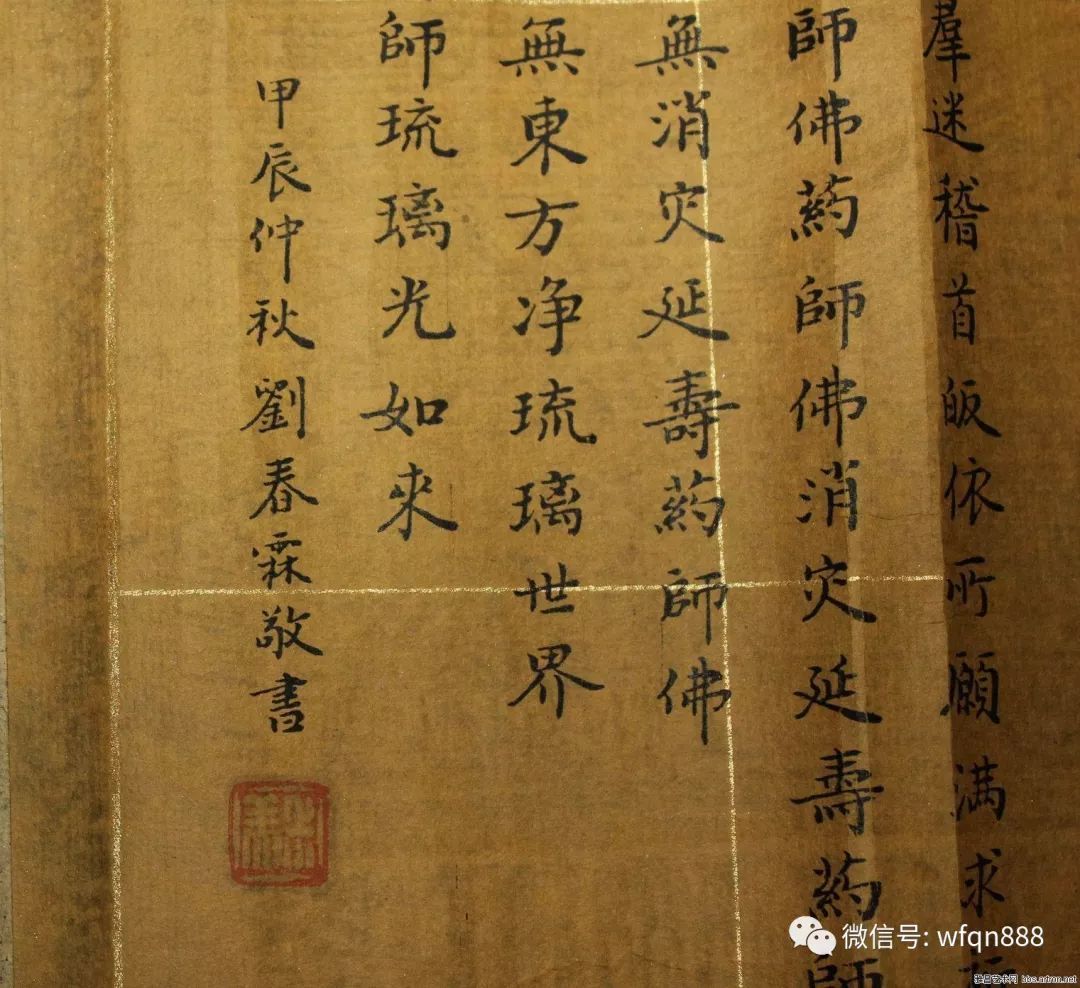 羣迷稽首皈依所願满求
師佛葯師佛消灾延壽葯師
無消灾延壽葯師佛
無東方净琉璃世界
師琉璃光如来
甲辰仲秋劉春霖敬書
微信号: wfqn888
雅昌艺术网 bbs.artron.net